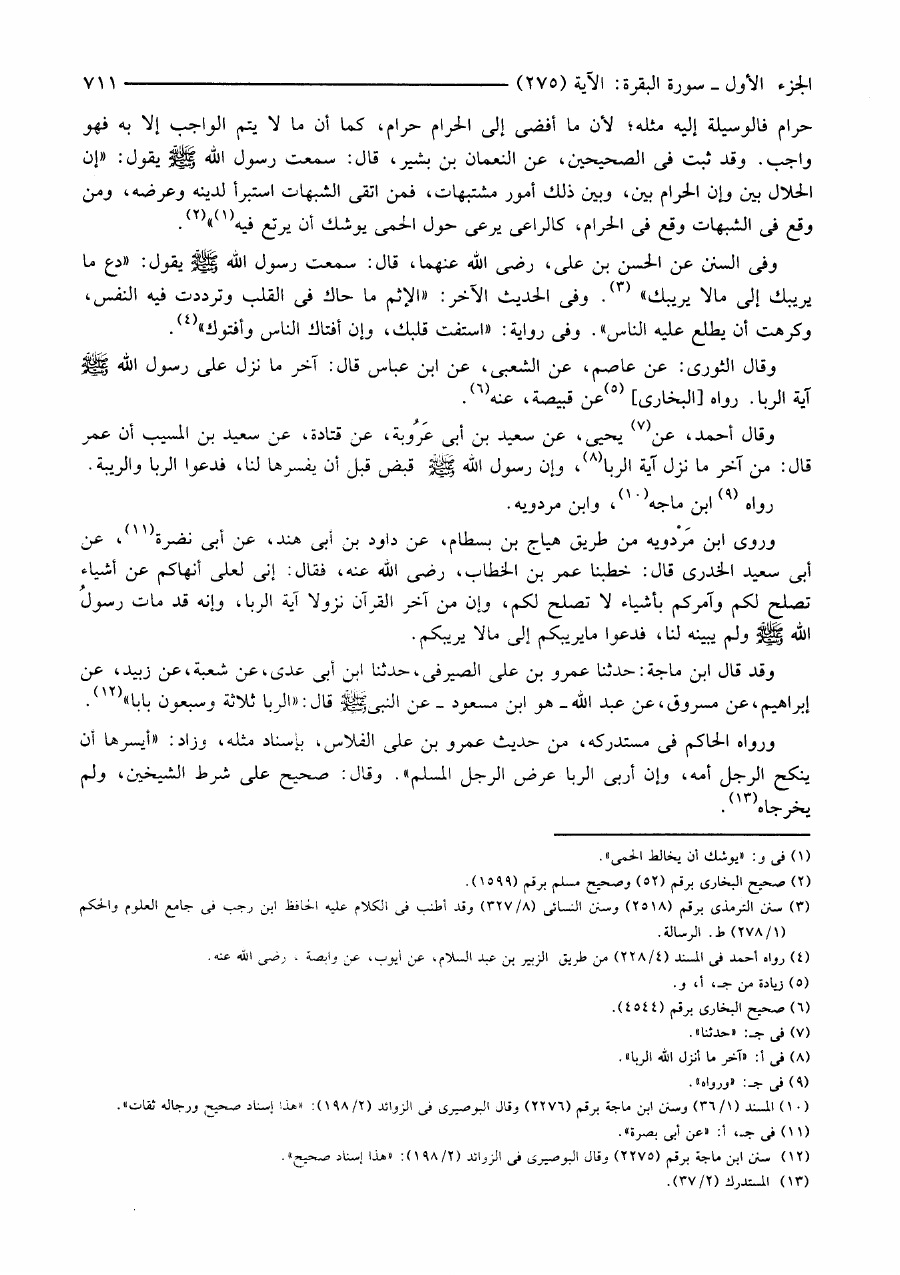 الجزء الأول ـ سورة البقرة: الآية (٢٧٥) ٧١١
حرام فالوسيلة إليه مثله؛ لأن ما أفضى إلى الحرام حرام، كما أن ما لا يتم الواجب إلا به فهو
واجب. وقد ثبت فى الصحيحين، عن النعمان بن بشير، قال: سمعت رسول الله ﷺ يقول: «إن
الحلال بين وإن الحرام بين، وبين ذلك أمور مشتبهات، فمن اتقى الشبهات استبرأ لدينه وعرضه، ومن
وقع فى الشبهات وقع فى الحرام، كالراعى يرعى حول الحمى يوشك أن يرتع فيه(١)»(٢).
وفى السنن عن الحسن بن على، رضى الله عنهما، قال: سمعت رسول الله ﷺ يقول: «دع ما
يريبك إلى مالا يريبك» (٣). وفى الحديث الآخر: «الإثم ما حاك فى القلب وترددت فيه النفس،
وكرهت أن يطلع عليه الناس». وفى رواية: «استفت قلبك، وإن أفتاك الناس وأفتوك»(٤).
وقال الثورى: عن عاصم، عن الشعبى، عن ابن عباس قال: آخر ما نزل على رسول الله ﷺ
آية الربا. رواه [البخارى] (٥)عن قبيصة، عنه(٦).
وقال أحمد، عن(٧) يحيى، عن سعيد بن أبى عَرُوبة، عن قتادة، عن سعيد بن المسيب أن عمر
قال: من آخر ما نزل آية الربا(٨)، وإن رسول الله ﷺ قبض قبل أن يفسرها لنا، فدعوا الربا والريبة.
رواه (٩) ابن ماجه(١٠)، وابن مردويه.
وروى ابن مَرْدويه من طريق هياج بن بسطام، عن داود بن أبى هند، عن أبى نضرة(١١)، عن
أبى سعيد الخدرى قال: خطبنا عمر بن الخطاب، رضى الله عنه، فقال: إنى لعلى أنهاكم عن أشياء
تصلح لكم وآمركم بأشياء لا تصلح لكم، وإن من آخر القرآن نزولا آية الربا، وإنه قد مات رسولُ
الله ﷺ ولم يبينه لنا، فدعوا مايريبكم إلى مالا يريبكم.
وقد قال ابن ماجة: حدثنا عمرو بن على الصيرفى، حدثنا ابن أبى عدى، عن شعبة، عن زبيد، عن
إبراهيم، عن مسروق، عن عبد الله ـ هو ابن مسعود ـ عن النبى ﷺ قال: «الربا ثلاثة وسبعون بابا»(١٢).
ورواه الحاكم فى مستدركه، من حديث عمرو بن على الفلاس، بإسناد مثله، وزاد: «أيسرها أن
ينكح الرجل أمه، وإن أربى الربا عرض الرجل المسلم». وقال: صحيح على شرط الشيخين، ولم
يخرجاه(١٣).
(١) فى و: «يوشك أن يخالط الحمى».
(٢) صحيح البخارى برقم (٥٢) وصحيح مسلم برقم (١٥٩٩).
(٣) سنن الترمذى برقم (٢٥١٨) وسنن النسائى (٣٢٧/٨) وقد أطنب فى الكلام عليه الحافظ ابن رجب فى جامع العلوم والحكم
(٢٧٨/١) ط. الرسالة.
(٤) رواه أحمد فى المسند (٢٢٨/٤) من طريق الزبير بن عبد السلام، عن أيوب، عن وابصة ، رضى الله عنه.
(٥) زيادة من جـ، أ، و.
(٦) صحيح البخارى برقم (٤٥٤٤).
(٧) فى جـ: «حدثنا».
(٨) فى أ: «آخر ما أنزل الله الربا».
(٩) فى جـ: «ورواه».
(١٠) المسند (٣٦/١) وسنن ابن ماجة برقم (٢٢٧٦) وقال البوصيرى فى الزوائد (١٩٨/٢): «هذا إسناد صحيح ورجاله ثقات».
(١١) فى جـ، أ: «عن أبى بصرة».
(١٢) سنن ابن ماجة برقم (٢٢٧٥) وقال البوصيرى فى الزوائد (١٩٨/٢): «هذا إسناد صحيح».
(١٣) المستدرك (٣٧/٢).